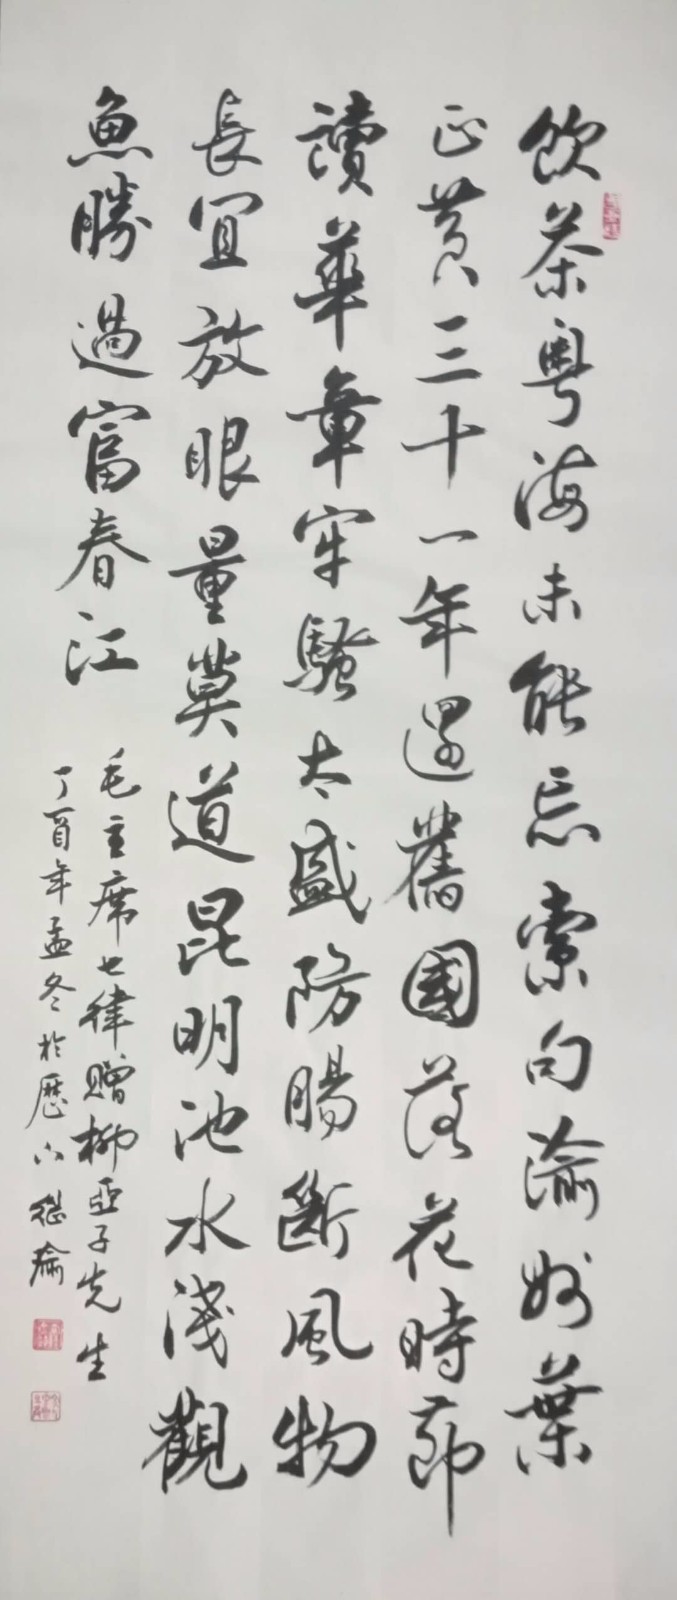 飲茶粵海未能忘索句渝州葉
正黃三十一年還舊國落花時節
讀華章牢騷太盛防腸斷風物
長宜放眼量莫道昆明池水淺觀
魚勝過富春江
毛主席七律贈柳亞子先生
丁酉年孟冬於歷下繼瑜